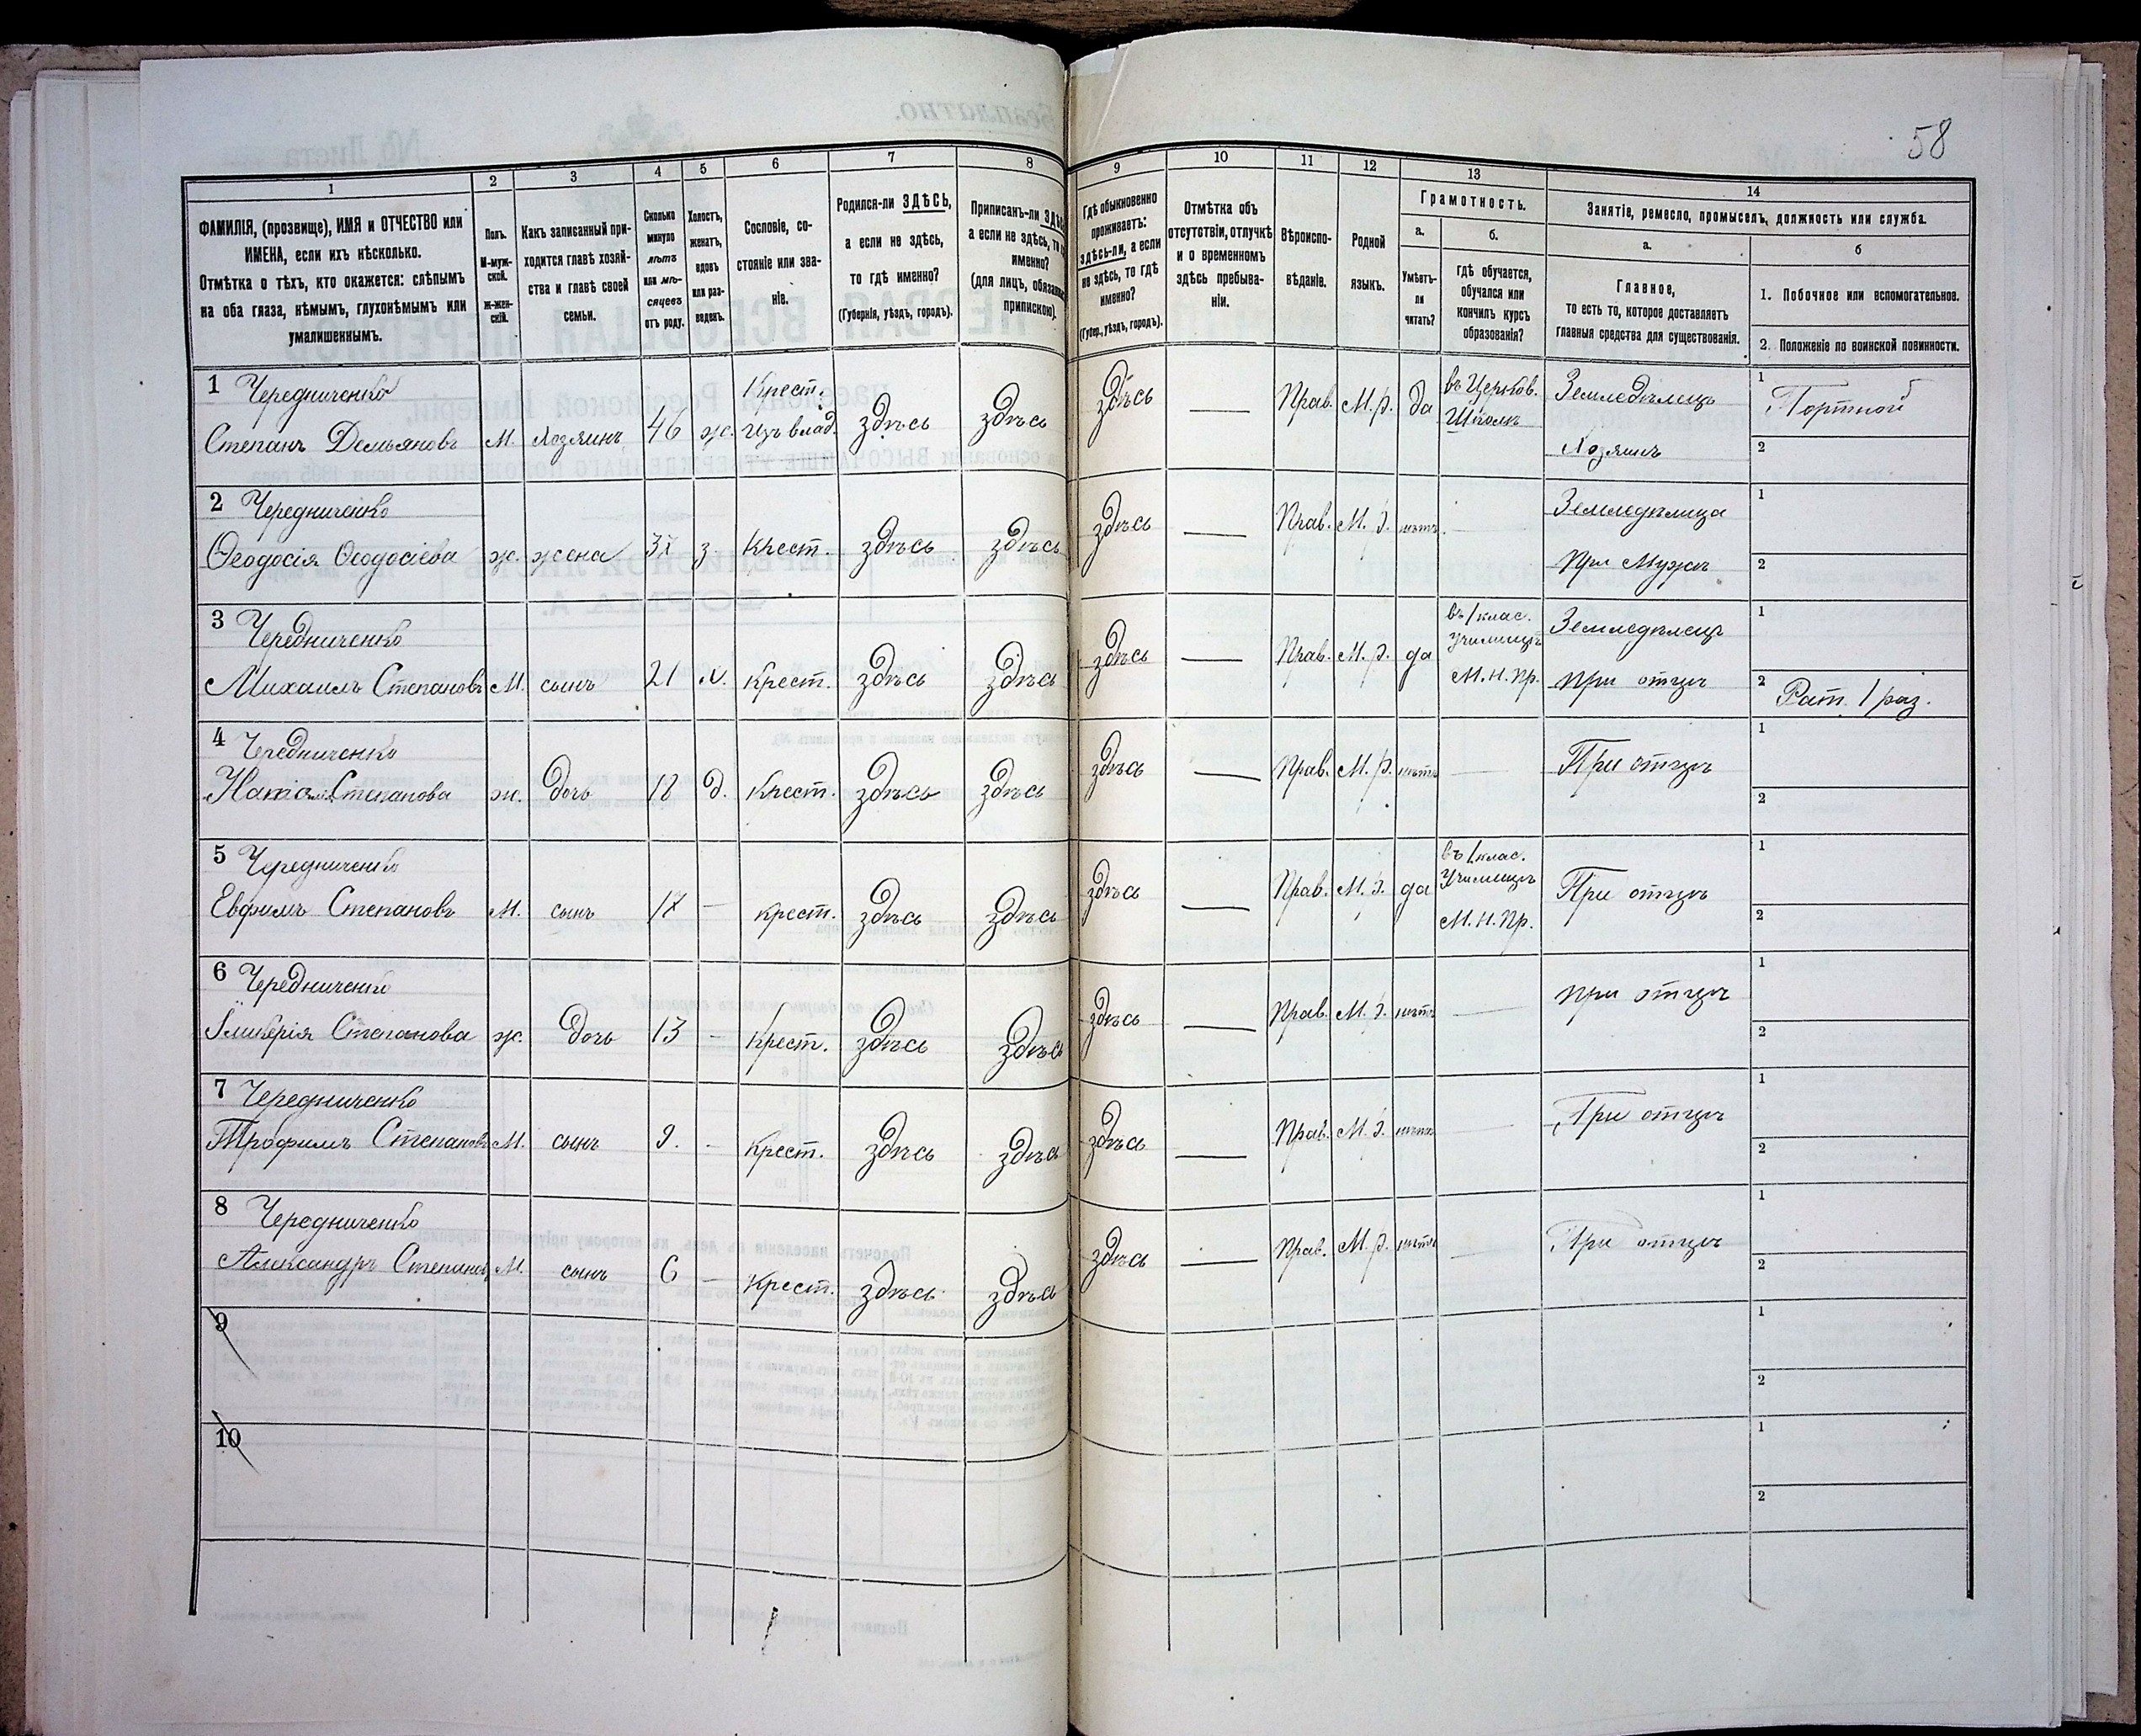 58
1 2 3 4 5 6 7 8 9 10 11 12 13 14
ФАМИЛІЯ, (прозвище), ИМЯ и ОТЧЕСТВО или
ИМЕНА, если ихъ нѣсколько.
Отмѣтка о тѣхъ, кто окажется: слѣпымъ
на оба глаза, нѣмымъ, глухонѣмымъ или
умалишеннымъ.
Полъ.
М-муж-
ской.
Ж-жен-
скій.
Какъ записанный при-
ходится главѣ хозяй-
ства и главѣ своей
семьи.
Сколько
минуло
лѣтъ
или мѣ-
сяцевъ
отъ роду.
Холостъ,
женатъ,
вдовъ
или раз-
веденъ.
Сословіе, со-
стояніе или зва-
ніе.
Родился-ли ЗДѢСЬ,
а если не здѣсь,
то гдѣ именно?
(Губернія, уѣздъ, городъ).
Приписанъ-ли
а если не здѣсь,
именно?
(для лицъ,
припискою).
Гдѣ обыкновенно
проживаетъ:
здѣсь-ли, а если
не здѣсь, то гдѣ
именно?
(Губер., уѣздъ, городъ).
Отмѣтка объ
отсутствіи, отлучкѣ
и о временномъ
здѣсь пребыва-
ніи.
Вѣроиспо-
вѣданіе.
Родной
языкъ.
Грамотность.
а.
Умѣетъ-
ли
читать?
б.
гдѣ обучается,
обучался или
кончилъ курсъ
образованія?
Занятіе, ремесло, промыселъ, должность или служба.
а.
Главное,
то есть то, которое доставляетъ
главныя средства для существованія.
б
1. Побочное или вспомогательное.
2. Положеніе по воинской повинности.
1 Чередниченко Крест. въ Церков. Земледѣлецъ 1 Портной
Степанъ Демьяновъ М. Хозяинъ 46 ж. изъ влад. здѣсь здѣсь здѣсь — Прав. М.р. да Школѣ Хозяинъ 2
2 Чередниченко Земледѣлица 1
Ѳеодосія Ѳеодосіева ж. жена з. Крест. здѣсь здѣсь здѣсь — Прав. М.р. нѣтъ — При Мужѣ 2
3 Чередниченко въ 1 клас. Земледѣлецъ 1
Училищѣ
Михаилъ Степановъ М. сынъ 21 х. Крест. здѣсь здѣсь здѣсь — Прав. М.р. да М.Н.Пр. при отцѣ 2 Рат. 1 раз.
4 Чередниченко 1
Степанова ж. дочь 18 д. Крест. здѣсь здѣсь здѣсь — Прав. М.р. нѣтъ — При отцѣ 2
5 Чередниченко въ 1 клас. 1
Училищѣ
Евфимъ Степановъ М. сынъ — крест. здѣсь здѣсь здѣсь — Прав. М.р. да М.Н.Пр. При отцѣ 2
6 Чередниченко 1
Степанова ж. дочь 13 - Крест. здѣсь здѣсь здѣсь — Прав. М.р. нѣтъ — при отцѣ 2
7 Чередниченко 1
Трофимъ Степановъ М. сынъ 9. - Крест. здѣсь здѣсь здѣсь — Прав. М.р. нѣтъ — При отцѣ 2
8 Чередниченко 1
Александръ Степановъ М. сынъ 6 — Крест. здѣсь здѣсь здѣсь — Прав. М.р. нѣтъ — При отцѣ 2
9 1
2
10 1
2